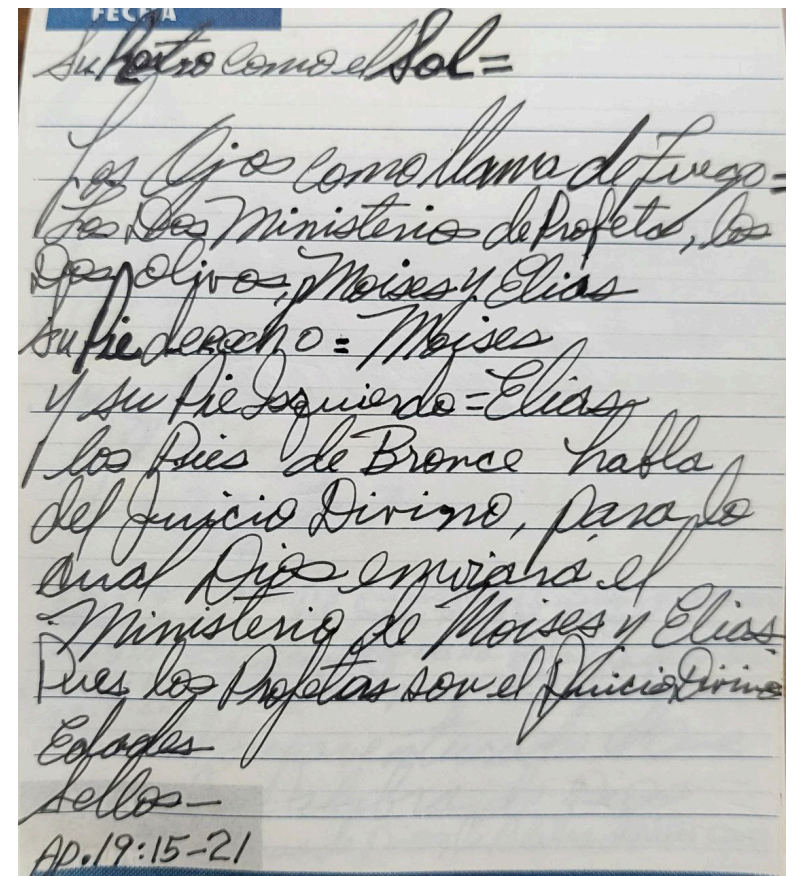 FECHA
Su Rostro como el Sol=
Los Ojos como llama de Fuego=
Los Dos Ministerios de Profeta, los
Dos olivos, Moises y Elias
Su Pie derecho = Moises
y su Pie Isquierdo = Elias
y los Pies de Bronce habla
del Juicio Divino, para lo
cual Dios enviará el
Ministerio de Moises y Elias
Pues los Profetas son el Juicio Divino
Edades
Sellos-
Ap. 19:15-21